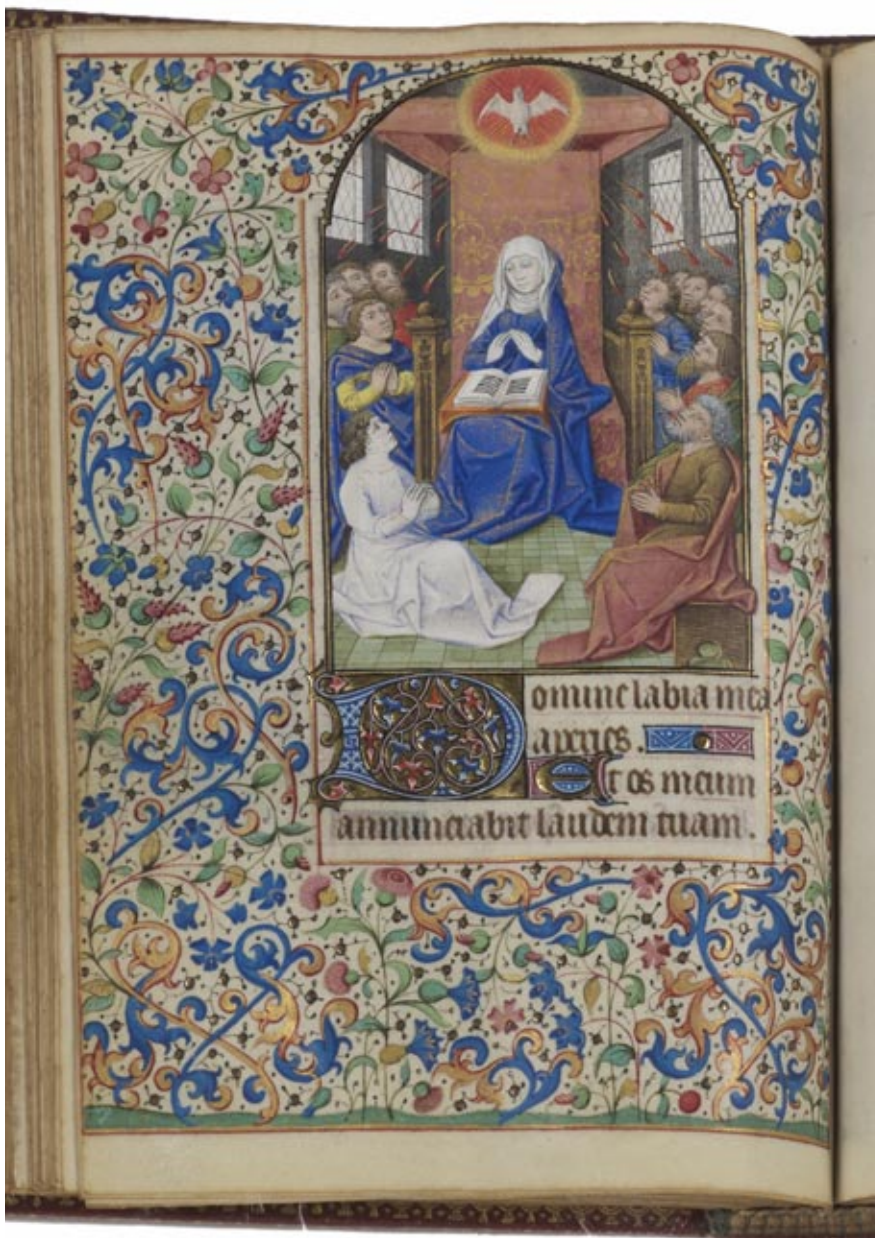 Domine labia mea
aperies.
Et os meum
annunciabit laudem tuam.